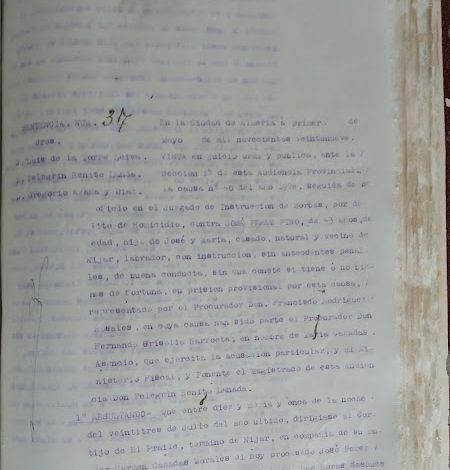 SENTENCIA. NUM. 37
En la Ciudad de Almería a primero de
Sres.
Mayo de mil novecientos veintinueve.
D. Luis de la Torre Leiva.
VISTA en juicio oral y público, ante la
D. Pelegrin Benito Landa.
Sección 1ª de esta Audiencia Provincial,
D. Gregorio Azaña y Diaz.
la causa nº 40 del año 1928, seguida de
oficio en el Juzgado de Instrucción de Sorbas, por de-
lito de Homicidio, contra JOSÉ PEREZ PINO, de 43 años, de
edad, hijo de José y María, casado, natural y vecino de
Nijar, labrador, con instrucción, sin antecedentes pena-
les, de buena conducta, sin que conste si tiene ó no bie-
nes de fortuna, en prision provisional por esta causa,
representado por el Procurador Don Francisco Rodriguez
Rosales, en cuya causa han sido parte el Procurador Don
Fernando Grisolia Barrocta, en nombre de María Cañadas
Asencio, que ejercita la acusación particular, y el Mi-
nisterio Fiscal, y Ponente el Magistrado de esta Audien-
cia Don Pelegrin Benito Landa.
1º RESULTANDO: que entre diez y media y once de la noche
del veintitres de Julio del año ultimo, dirigiase al Cor-
tijo de El Fraile, termino de Nijar, en compañia de su
Carmen Cañadas Morales el hoy procesado José Perez
horas despues